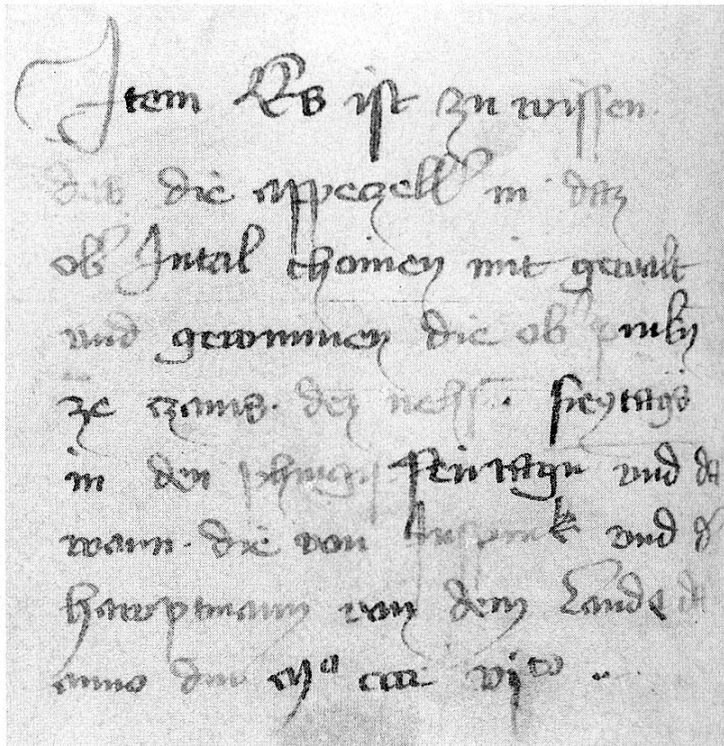 Item Es ist zu wissen
das die appezell in daz
ob Intal chomen mit gewalt
und gewunnen die ob prukn
ze zams. dez nehst. freytags
in den phingst feirtagn und da
wann. die von Insprukk und d
hawptmann von dem Lande da
anno dm Mo cccc vito